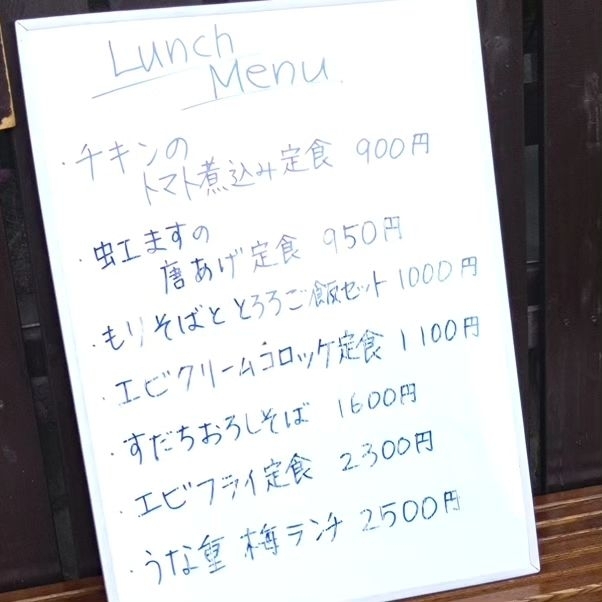 Lunch
Menu.
・チキンの
トマト煮込み定食 900円
・虹ますの
唐あげ定食 950円
・もりそばととろろご飯セット 1000円
・エビクリームコロッケ定食 1100円
・すだちおろしそば 1600円
・エビフライ定食 2300円
・うな重 梅ランチ 2500円